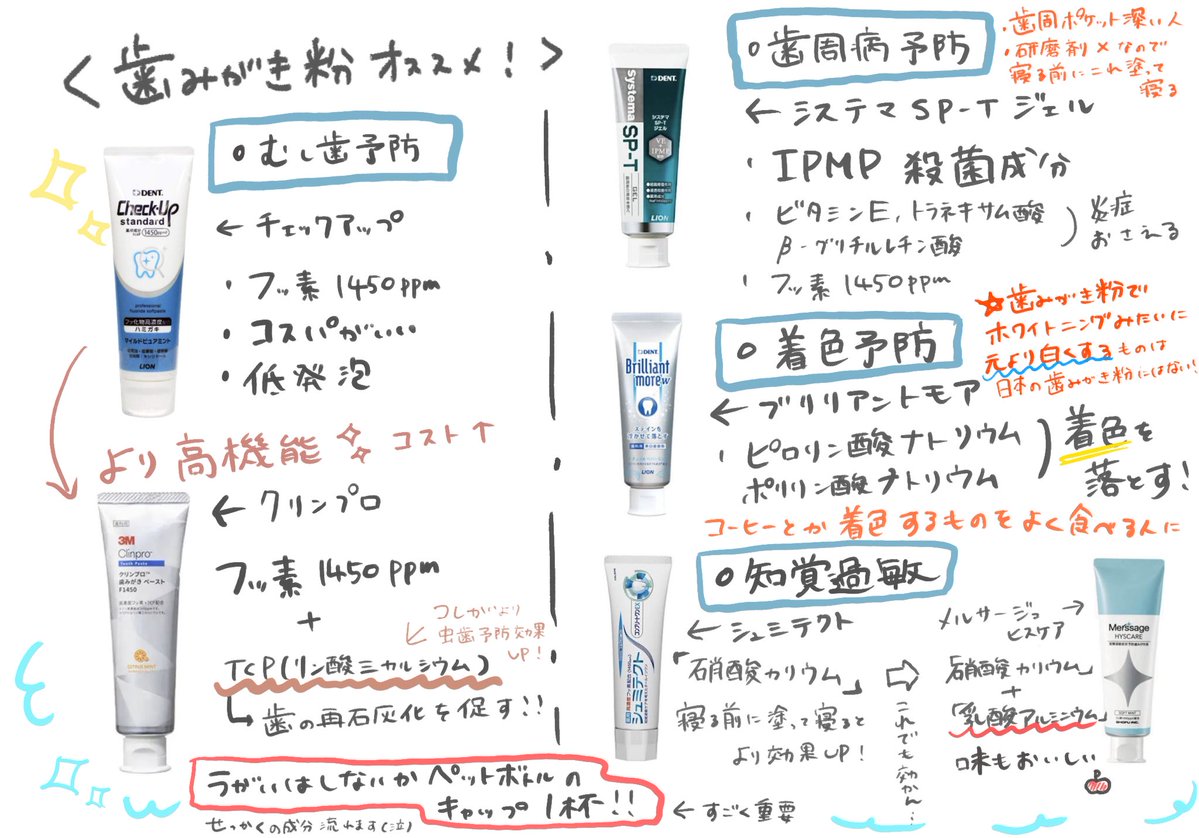 ＜歯みがき粉オススメ！＞
○むし歯予防
DENT.
Check-Up
standard
1450ppm
professional
fluoride toothpaste
フッ化物高濃度配合
ハミガキ
マイルドピュアミント
LION
←チェックアップ
・フッ素1450ppm
・コスパがいい
・低発泡
より高機能 コスト↑
3M
Clinpro
Tooth Paste
クリンプロ
歯みがきペースト
F1450
CITRUS MINT
←クリンプロ
フッ素1450ppm
+
TCP(リン酸三カルシウム)
コレがより
虫歯予防効果
UP！
歯の再石灰化を促す!!
うがいはしないかペットボトルの
キャップ1杯!!
←すごく重要
せっかくの成分流れます(泣)
○歯周病予防
・歯周ポケット深い人
・研磨剤×なので
寝る前にこれ塗って
寝る
Systema
SP-T
DENT.
システマ
SP-T
ジェル
GEL
LION
←システマSP-Tジェル
・IPMP 殺菌成分
・ビタミンE,トラネキサム酸
β-グリチルレチン酸
炎症
おさえる
・フッ素1450ppm
○着色予防
☆歯みがき粉で
ホワイトニングみたいに
元より白くするものは
日本の歯みがき粉にはない!
DENT.
Brilliant
more W
ステインを
浮かせて落とす
LION
←ブリリアントモア
・ピロリン酸ナトリウム
ポリリン酸ナトリウム
着色を
落とす!
コーヒーとか着色するものをよく食べる人に
○知覚過敏
コンプリートワンEX
シュミテクト
←シュミテクト
「硝酸カリウム」
寝る前に塗って寝ると
より効果UP！
これでも効かん…
メルサージュ
ヒスケア
「硝酸カリウム」
+
「乳酸アルミニウム」
味もおいしい
Merssage
HYSCARE
SOFT MINT
SHOFU INC.